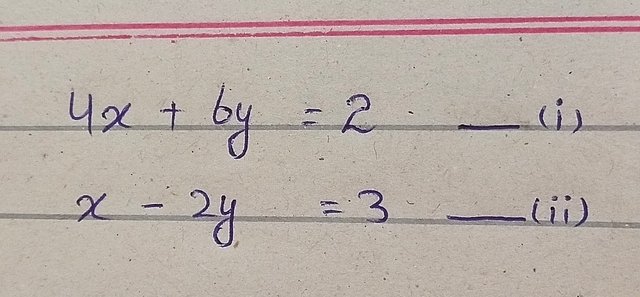 4x + 6y = 2 — (i)
x - 2y = 3 — (ii)